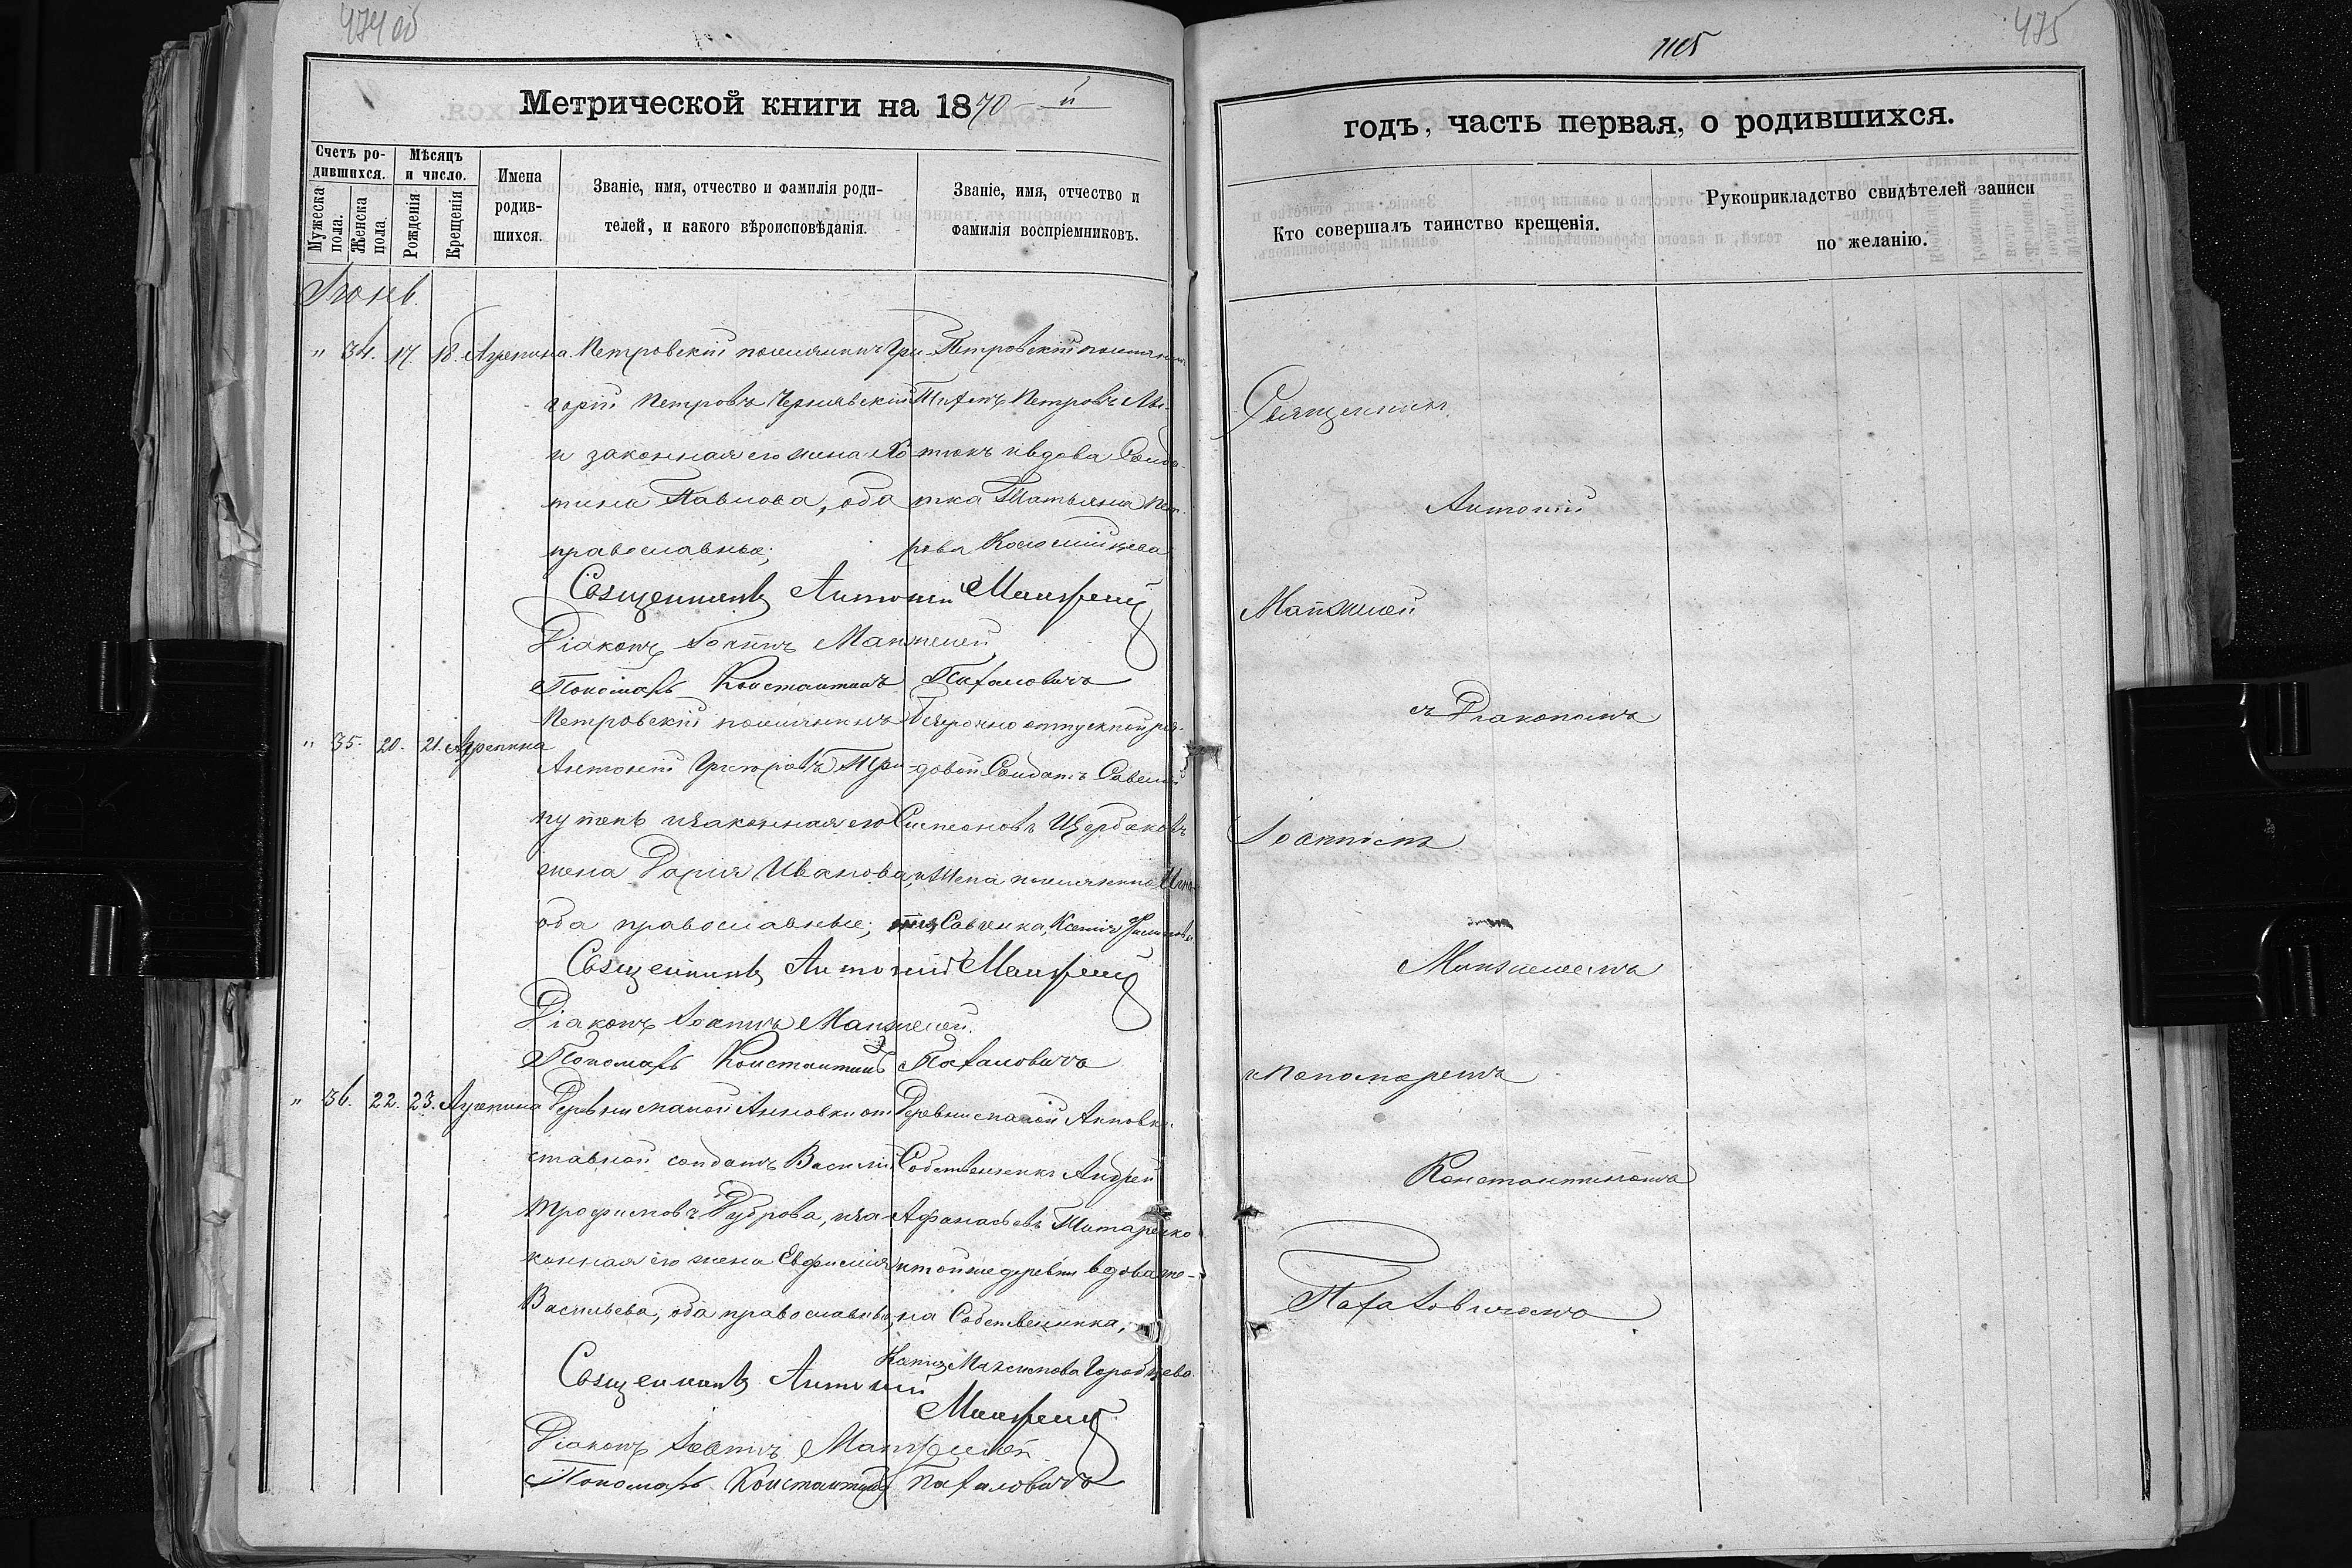 474 об
Метрической книги на 1870-й
Счетъ родившихся.
Мѣсяцъ и число.
Мужеска пола.
Женска пола.
Рожденія
Крещенія
Имена родившихся.
Званіе, имя, отчество и фамилія родителей, и какого вѣроисповѣданія.
Званіе, имя, отчество и фамилія воспріемниковъ.
Іюнь.
" 34. 17. 18. Агрепина
Петровскій поселянинъ Гри-
горій Петровъ Чернявскій
и законная его жена Хо
тина Павлова, оба
православные;
Петровскій поселянинъ
Петровъ Лы-
и вдова Солда-
тка Татьяна Пет-
рова Коломійцева
Священникъ Антоній Манжелей
Діаконъ Іоаннъ Манжелей
Пономарь Константинъ Паталовичъ
" 35. 20. 21. Агрепина
Петровскій поселянинъ
Антоній Григоровъ Три-
путень и законная его
жена Дарія Иванова,
оба православные;
Безсрочно отпускной ря-
довой Солдатъ Савелій
Симеоновъ Щербаковъ
и жена поселянина Игна-
тія Савченка, Ксенія Филипова
Священникъ Антоній Манжелей
Діаконъ Іоаннъ Манжелей.
Пономарь Константинъ Паталовичъ
" 36. 22. 23. Агрепина
Деревни малой Анновки от
ставной солдатъ Василій
Трофимовъ Дуброва, и за-
конная его жена Евфимія
Васильева, оба православные,
Деревни малой Анновки
Собственникъ Андрей
Афанасьевъ Титаренко
и той же деревни вдова же-
на Собственника,
Ксенія Максимова Горобцева
Священникъ Антоній
Манжелей
Діаконъ Іоаннъ Манжелей
Пономарь Константинъ Паталовичъ
1105
475
годъ, часть первая, о родившихся.
Кто совершалъ таинство крещенія.
Рукоприкладство свидѣтелей записи по желанію.
Священникъ
Антоній
Манжелей
съ Діакономъ
Іоанномъ
Манжелеемъ
и Пономаремъ
Константиномъ
Паталовичемъ